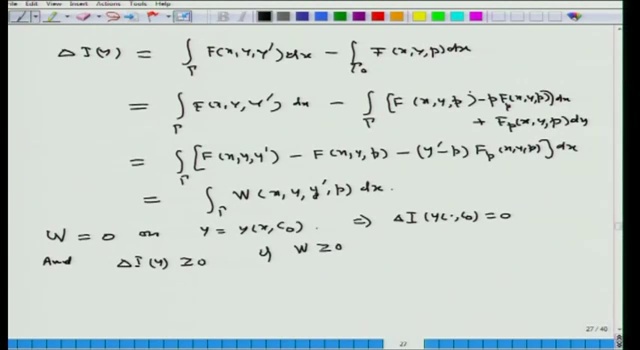 File Edit View Insert Actions Tools Help
Δ I(y) = ∫_Γ F(x,y,y')dx − ∫_Γ₀ F(x,y,p)dx
= ∫_Γ F(x,y,y') dx − ∫_Γ [F(x,y,p) − p F_p(x,y,p)]dx
+ F_p(x,y,p)dy
= ∫_Γ [F(x,y,y') − F(x,y,p) − (y'−p) F_p(x,y,p)]dx
= ∫_Γ W(x,y,y',p) dx.
W = 0 on y = y(x,c₀). ⇒ Δ I(y(·,c₀)) = 0
And Δ I(y) ≥ 0 if W ≥ 0
27 / 40
27